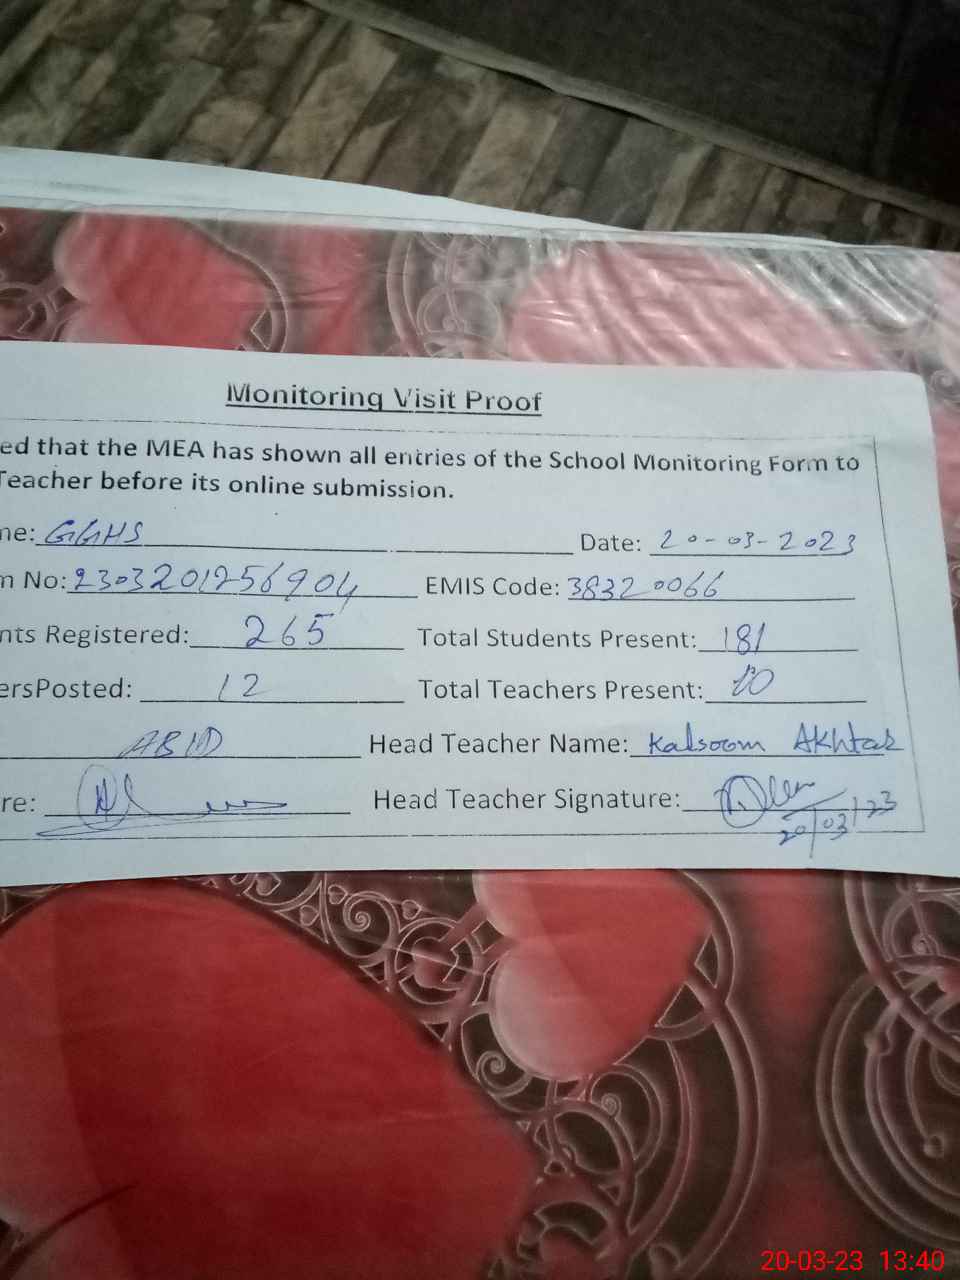 Monitoring Visit Proof
ed that the MEA has shown all entries of the School Monitoring Form to
Teacher before its online submission.
me: GGHS Date: 20-03-2023
n No: 2303201256904 EMIS Code: 38320066
nts Registered: 265 Total Students Present: 181
ersPosted: 12 Total Teachers Present: 10
ABID Head Teacher Name: Kalsoom Akhtar
re: Head Teacher Signature:
20/03/23
20-03-23 13:40